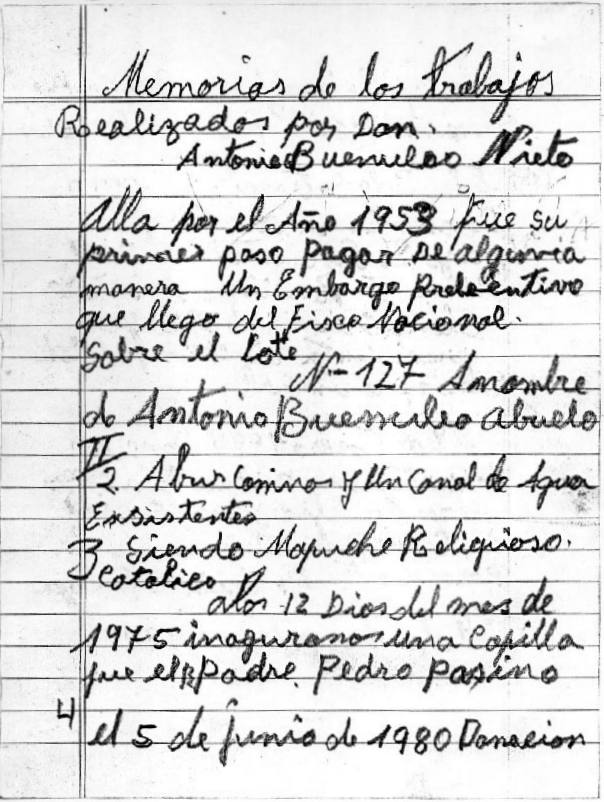 Memorias de los trabajos
Realizados por Don.
Antonio Buenuleo Nieto
Alla por el Año 1953 fue su
primer paso pagar de alguna
manera Un Embargo
que llego del Fisco Nacional.
Sobre el Lote
N- 127 A nombre
de Antonio Buenuleo abuelo
II
2 Abrir Caminos y Un Canal de Agua
Exsistentes
3 Siendo Mapuche Religioso.
Catolico
a los 12 Dias del mes de
1975 inaguramos una Capilla
fue el Padre. Pedro Pasino
4 el 5 de junio de 1980 Donacion